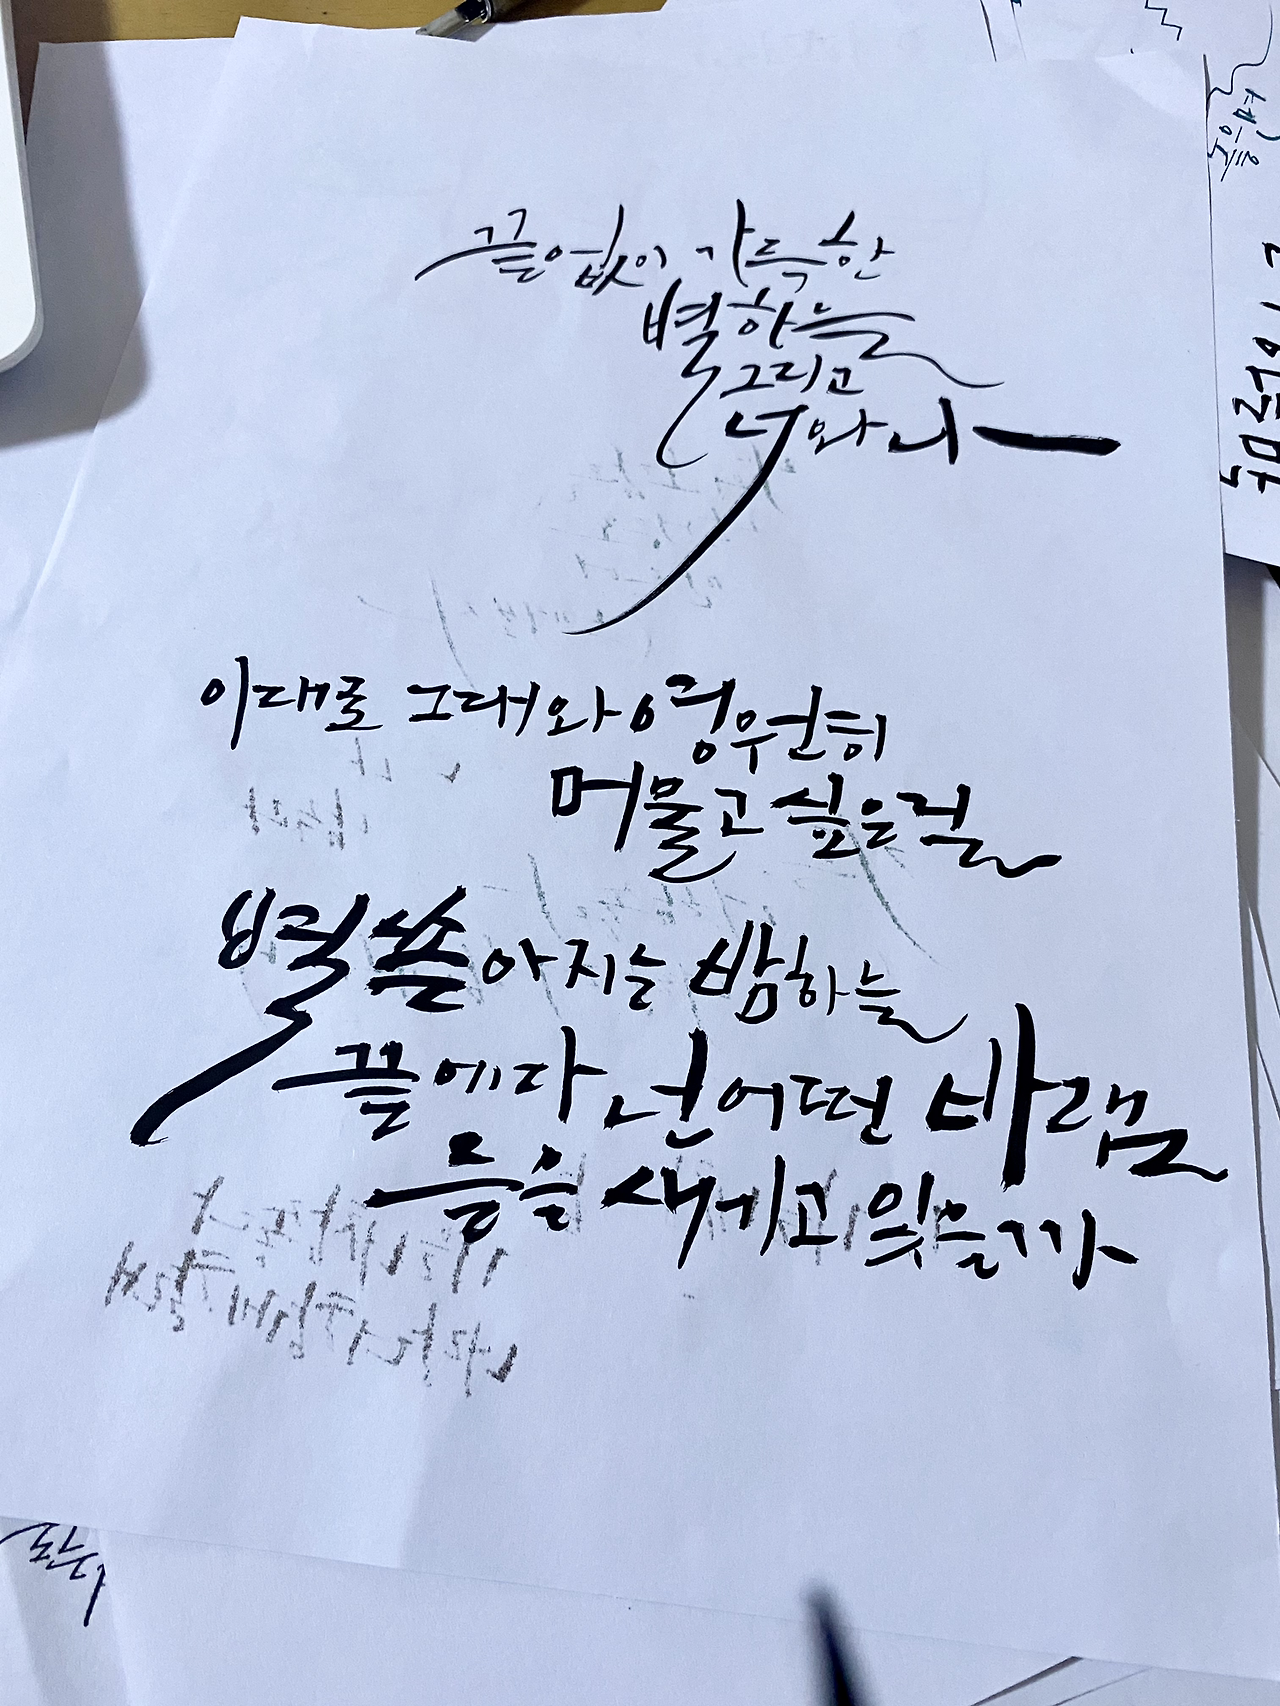 끝없이 가득한
별하늘
그리고
너와 나
이대로 그대와 영원히
머물고 싶은 걸
별 쏟아지는 밤하늘
끝에다 넌 어떤 바램
들을 새기고 있을까